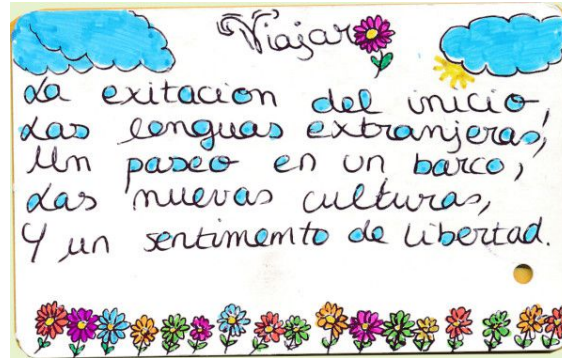 Viajar
La exitacion del inicio,
Las lenguas extranjeras,
Un paseo en un barco,
Las nuevas culturas,
Y un sentimemto de libertad.